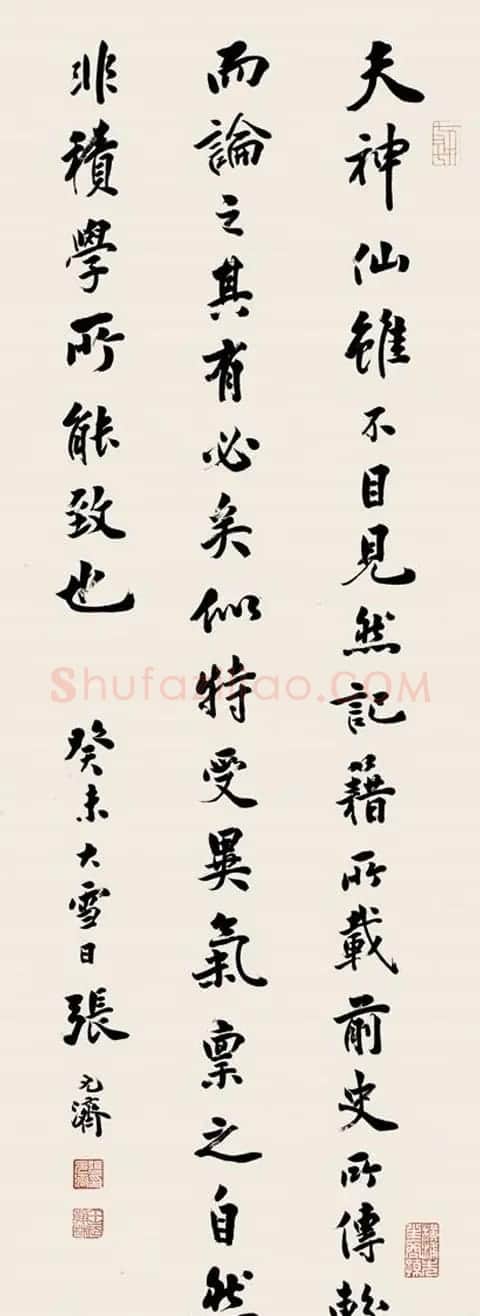 夫神仙雖不目見然記籍所載前史所傳較
而論之其有必矣似特受異氣禀之自然
非積學所能致也
癸未大雪日張元濟
Shufaziliao.COM